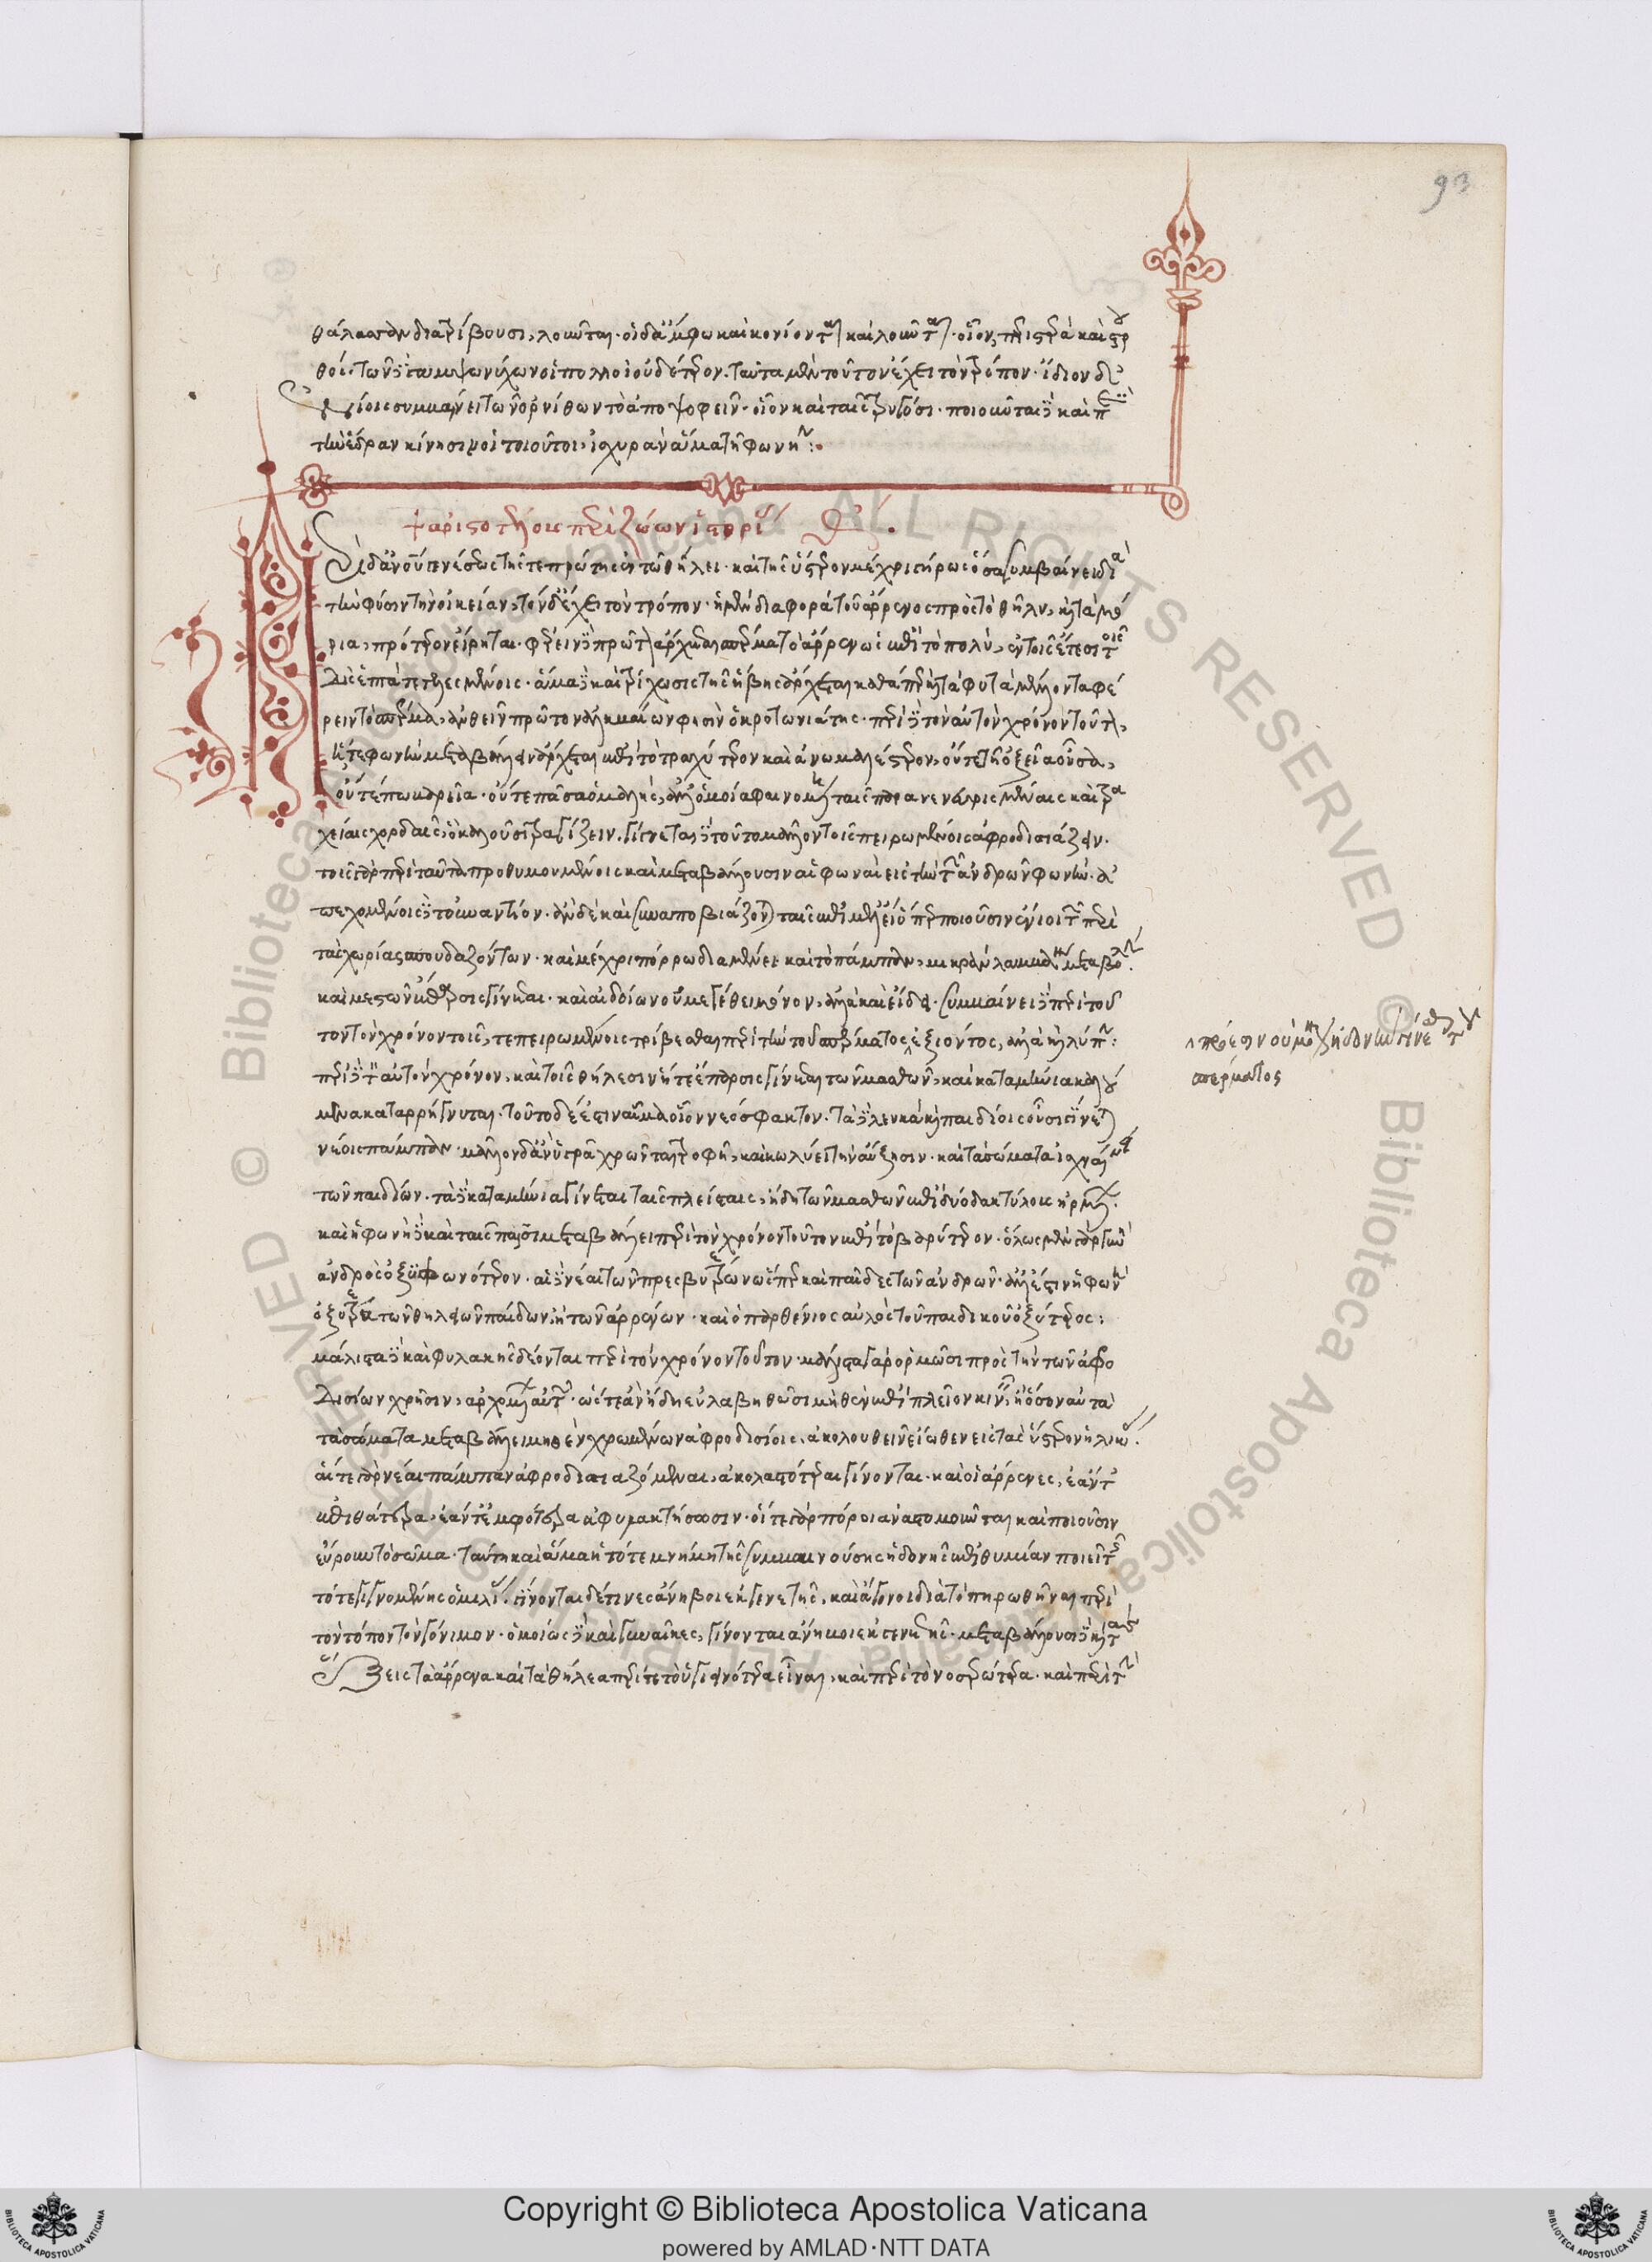 93
θάλατταν διατρίβουσι, λοῦνται· οἱ δ' ἄμφω καὶ κονίονται καὶ λοῦνται· οἷον περιστερὰ καὶ στρου
θοί· τῶν δὲ γαμψωνύχων οἱ πολλοὶ οὐδέτερον. ταῦτα μὲν τοῦτον ἔχει τὸν τρόπον· ἴδιον δ'
ἐνίοις συμβαίνει τῶν ὀρνίθων τὸ ἀποψοφεῖν· οἷον καὶ ταῖς τρυγόσι· ποιοῦνται δὲ καὶ περὶ
τὴν ἕδραν κίνησιν οἱ τοιοῦτοι, ἰσχυρὰν ἅμα τῇ φωνῇ:
ἀριστοτέλους περὶ ζώων ἱστορίας
περὶ δ' ἀνθρώπου γενέσεως τῆς τε πρώτης ἐν τῷ θήλει· καὶ τῆς ὕστερον μέχρι γήρως ὅσα συμβαίνει διὰ
τὴν φύσιν τὴν οἰκείαν, τόνδ' ἔχει τὸν τρόπον· ἡ μὲν διαφορὰ τοῦ ἄρρενος πρὸς τὸ θῆλυ, καὶ τὰ μό
ρια, πρότερον εἴρηται· φέρειν δὲ πρῶτον ἄρχεται σπέρμα τὸ ἄρρεν ὡς ἐπὶ τὸ πολύ, ἐν τοῖς ἔτεσι τοῖς
δὶς ἑπτὰ τετελεσμένοις· ἅμα δὲ καὶ τρίχωσις τῆς ἥβης ἄρχεται καθάπερ καὶ τὰ φυτὰ μέλλοντα φέ
ρειν τὸ σπέρμα, ἀνθεῖν πρῶτον ἀλκμαίων φησὶν ὁ κροτωνιάτης· περὶ δὲ τὸν αὐτὸν χρόνον τοῦτον,
ἥ τε φωνὴ μεταβάλλειν ἄρχεται ἐπὶ τὸ τραχύτερον καὶ ἀνωμαλέστερον, οὔτε τῇ ὀξεῖα οὖσα,
οὔτέ πω βαρεῖα· οὔτε πᾶσα ὁμαλής, ἀλλ' ὁμοία φαινομένη ταῖς παρανενευρισμέναις καὶ τρα
χείαις χορδαῖς, ὃ καλοῦσι τραγίζειν. γίγνεται δὲ τοῦτο μᾶλλον τοῖς πειρωμένοις ἀφροδισιάζειν·
τοῖς γὰρ περὶ ταῦτα προθυμουμένοις καὶ μεταβάλλουσιν αἱ φωναὶ εἰς τὴν τῶν ἀνδρῶν φωνήν· ἀ
πεχομένοις δὲ τοὐναντίον· ἂν δὲ καὶ συναποβιάζωνται ταῖς ἐπιμελείαις ὅπερ ποιοῦσιν ἔνιοι τῶν περὶ
τὰς χορείας σπουδαζόντων· καὶ μέχρι πόρρω διαμένει καὶ τὸ πάμπαν, μικρὰν λαμβάνει μεταβολήν.
καὶ μαστῶν ἔπαρσις γίνεται· καὶ αἰδοίων οὐ μεγέθει μόνον, ἀλλὰ καὶ εἴδει· συμβαίνει δὲ περὶ τοῦ
τον τὸν χρόνον τοῖς τε πειρωμένοις τρίβεσθαι περὶ τὴν τοῦ σπέρματος ἐξιόντος, ἀλλὰ καὶ λύπην:
πρόεσιν οὐ μόνον ἡδονὴν γίνεσθαι τοῦ
σπέρματος
περὶ δὲ τὸν αὐτὸν χρόνον, καὶ τοῖς θήλεσιν ἥ τε ἔπαρσις γίνεται τῶν μασθῶν, καὶ καταμήνια καλού
μενα καταρρήγνυται. τοῦτο δέ ἐστιν αἷμα οἷον νεόσφακτον. τὰ δὲ λευκὰ καὶ παιδίοις οὖσι γίνεται
νέοις πάμπαν· μᾶλλον δ' ἂν ὑγρᾷ χρῶνται τροφῇ, καὶ κωλύει τὴν αὔξησιν· καὶ τὰ σώματα ἰσχναίνει
τῶν παιδίων. τὰ δὲ καταμήνια γίνεται ταῖς πλείσταις, ἤδη τῶν μασθῶν ἐπὶ δύο δακτύλους ἠρμένων.
καὶ ἡ φωνὴ δὲ καὶ ταῖς παισὶ μεταβάλλει περὶ τὸν χρόνον τοῦτον ἐπὶ τὸ βαρύτερον· ὅλως μὲν γὰρ γυνὴ
ἀνδρὸς ὀξυφωνότερον· αἱ δὲ νέαι τῶν πρεσβυτέρων ὥσπερ καὶ παῖδες τῶν ἀνδρῶν· ἀλλ' ἔστιν ἡ φωνὴ
ὀξυτέρα τῶν θηλειῶν παίδων, ἢ τῶν ἀρρένων· καὶ ὁ παρθένιος αὐλὸς τοῦ παιδικοῦ ὀξύτερος:
μάλιστα δὲ καὶ φυλακῆς δέονται περὶ τὸν χρόνον τοῦτον· μάλιστα γὰρ ὁρμῶσι πρὸς τὴν τῶν ἀφρο
δισίων χρῆσιν, ἀρχομένων αὐτῶν· ὥστε ἂν ἤδη εὐλαβηθῶσι μηθὲν ἐπὶ πλεῖον κινεῖν, ἢ ὅσον αὐτὰ
τὰ σώματα μεταβάλλει μηθὲν χρωμένων ἀφροδισίοις, ἀκολουθεῖν εἴωθεν εἰς τὰς ὕστερον ἡλικίας.
αἵ τε γὰρ νέαι πάμπαν ἀφροδισιαζόμεναι, ἀκολαστότεραι γίνονται· καὶ οἱ ἄρρενες, ἐάν τ'
ἐπὶ θάτερα, ἐάν τ' ἐπ' ἀμφότερα ἀφυλακτήσωσιν· οἵ τε γὰρ πόροι ἀναστομοῦνται καὶ ποιοῦσιν
εὔρουν τὸ σῶμα· ταύτῃ καὶ ἅμα ἡ τότε μνήμη τῆς συμβαινούσης ἡδονῆς ἐπιθυμίαν ποιεῖ τῆς
τότε γιγνομένης ὁμιλίας. γίνονται δέ τινες ἄνηβοι ἐκ γενετῆς, καὶ ἄγονοι διὰ τὸ πηρωθῆναι περὶ
τὸν τόπον τὸν γόνιμον· ὁμοίως δὲ καὶ γυναῖκες, γίνονται ἄνηβοι ἐκ γενετῆς· μεταβάλλουσι δὲ καὶ τὰς
ἕξεις τὰ ἄρρενα καὶ τὰ θήλεα περί τε τὸ ὑγιεινότερα εἶναι, καὶ περὶ τὸ νοσερώτερα· καὶ περὶ τὴν
Copyright © Biblioteca Apostolica Vaticana
powered by AMLAD·NTT DATA